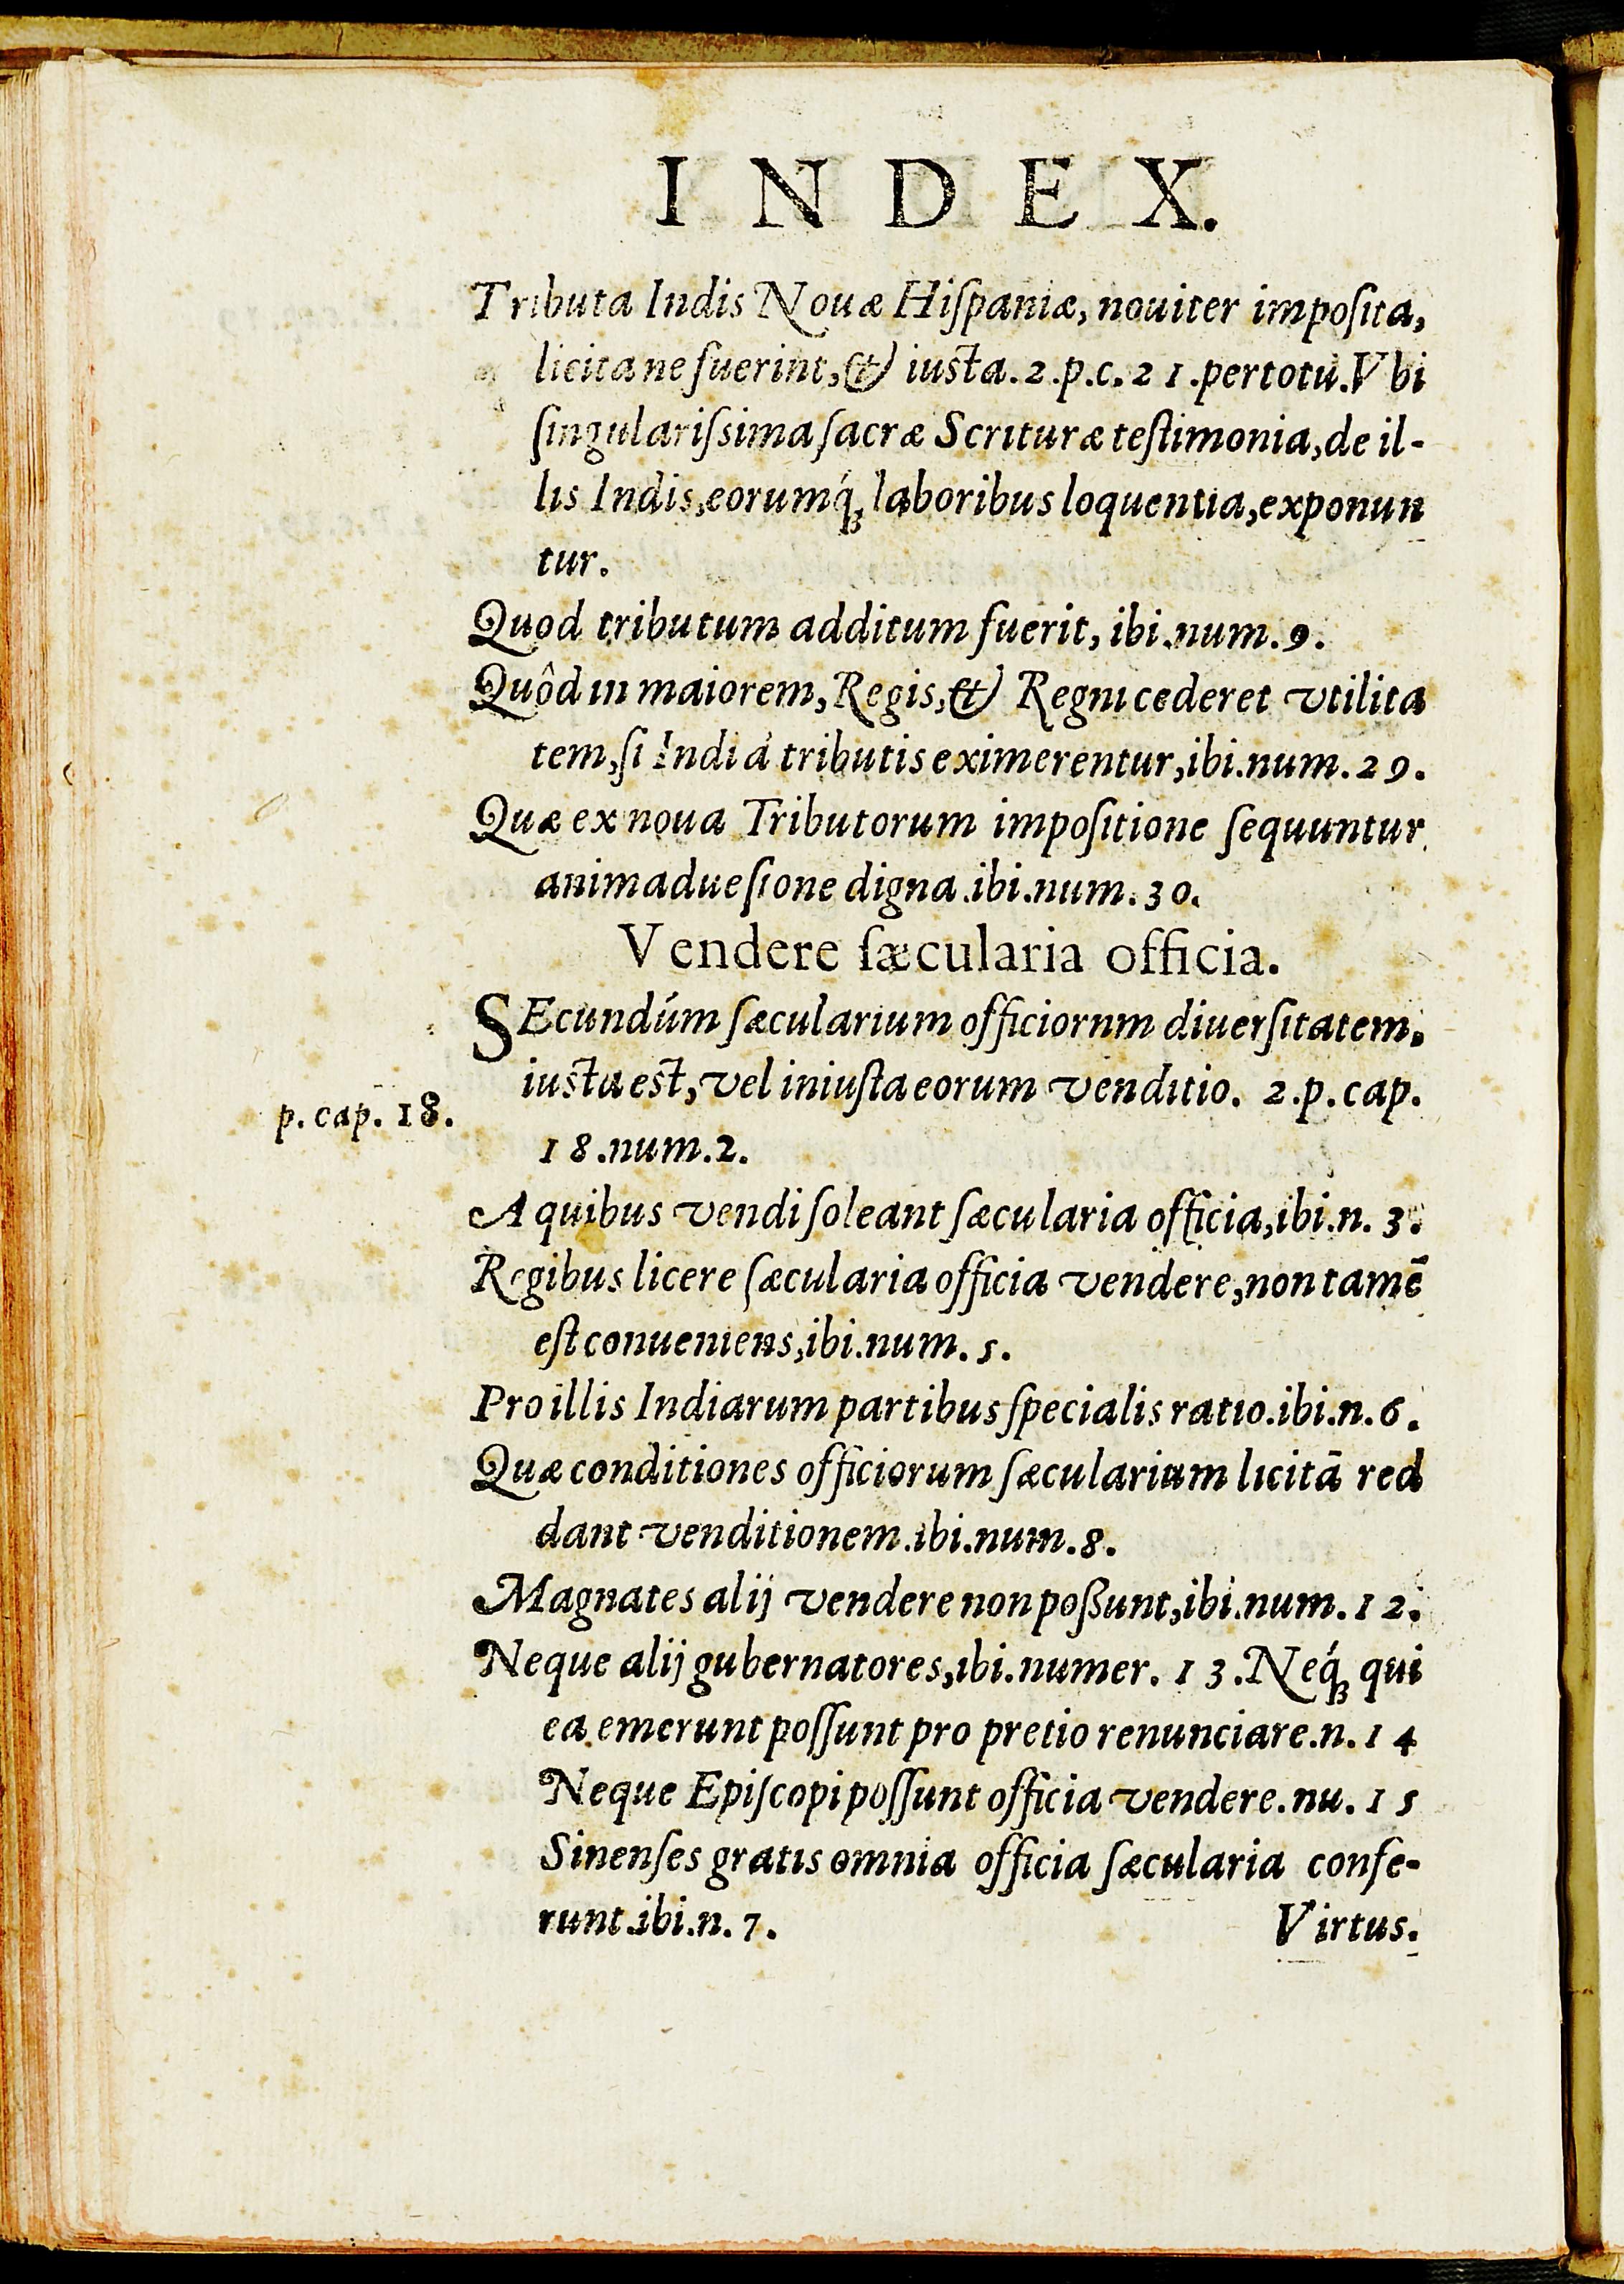 INDEX.
Tributa Indis Nouæ Hiſpaniæ, nouiter impoſita,
licita ne fuerint, & iusta. 2. p. c. 21. per totũ. Vbi
ſingulariſsima ſacræ Scrituræ teſtimonia, de il-
lis Indis, eorumq́ꝫ laboribus loquentia, exponun
tur.
Quod tributum additum fuerit, ibi. num. 9.
Quôd in maiorem, Regis, & Regni cederet vtilita
tem, ſi Indi à tributis eximerentur, ibi. num. 29.
Quæ ex noua Tributorum impoſitione ſequuntur
animadueſione digna. ibi. num. 30.
Vendere ſæcularia officia.
SEcundúm ſæcularium officiornm diuerſitatem,
iusta est, vel iniuſta eorum venditio. 2. p. cap.
18. num. 2.
p. cap. 18.
A quibus vendi ſoleant ſæcularia officia, ibi. n. 3.
Regibus licere ſæcularia officia vendere, non tamē
eſt conueniens, ibi. num. 5.
Pro illis Indiarum partibus ſpecialis ratio. ibi. n. 6.
Quæ conditiones officiorum ſæcularium licitā red
dant venditionem. ibi. num. 8.
Magnates alij vendere non poßunt, ibi. num. 12.
Neque alij gubernatores, ibi. numer. 13. Neq́ꝫ qui
ea emerunt poſſunt pro pretio renunciare. n. 14
Neque Epiſcopi poſſunt officia vendere. nu. 15
Sinenſes gratis omnia officia ſæcularia confe-
runt. ibi. n. 7.
Virtus.